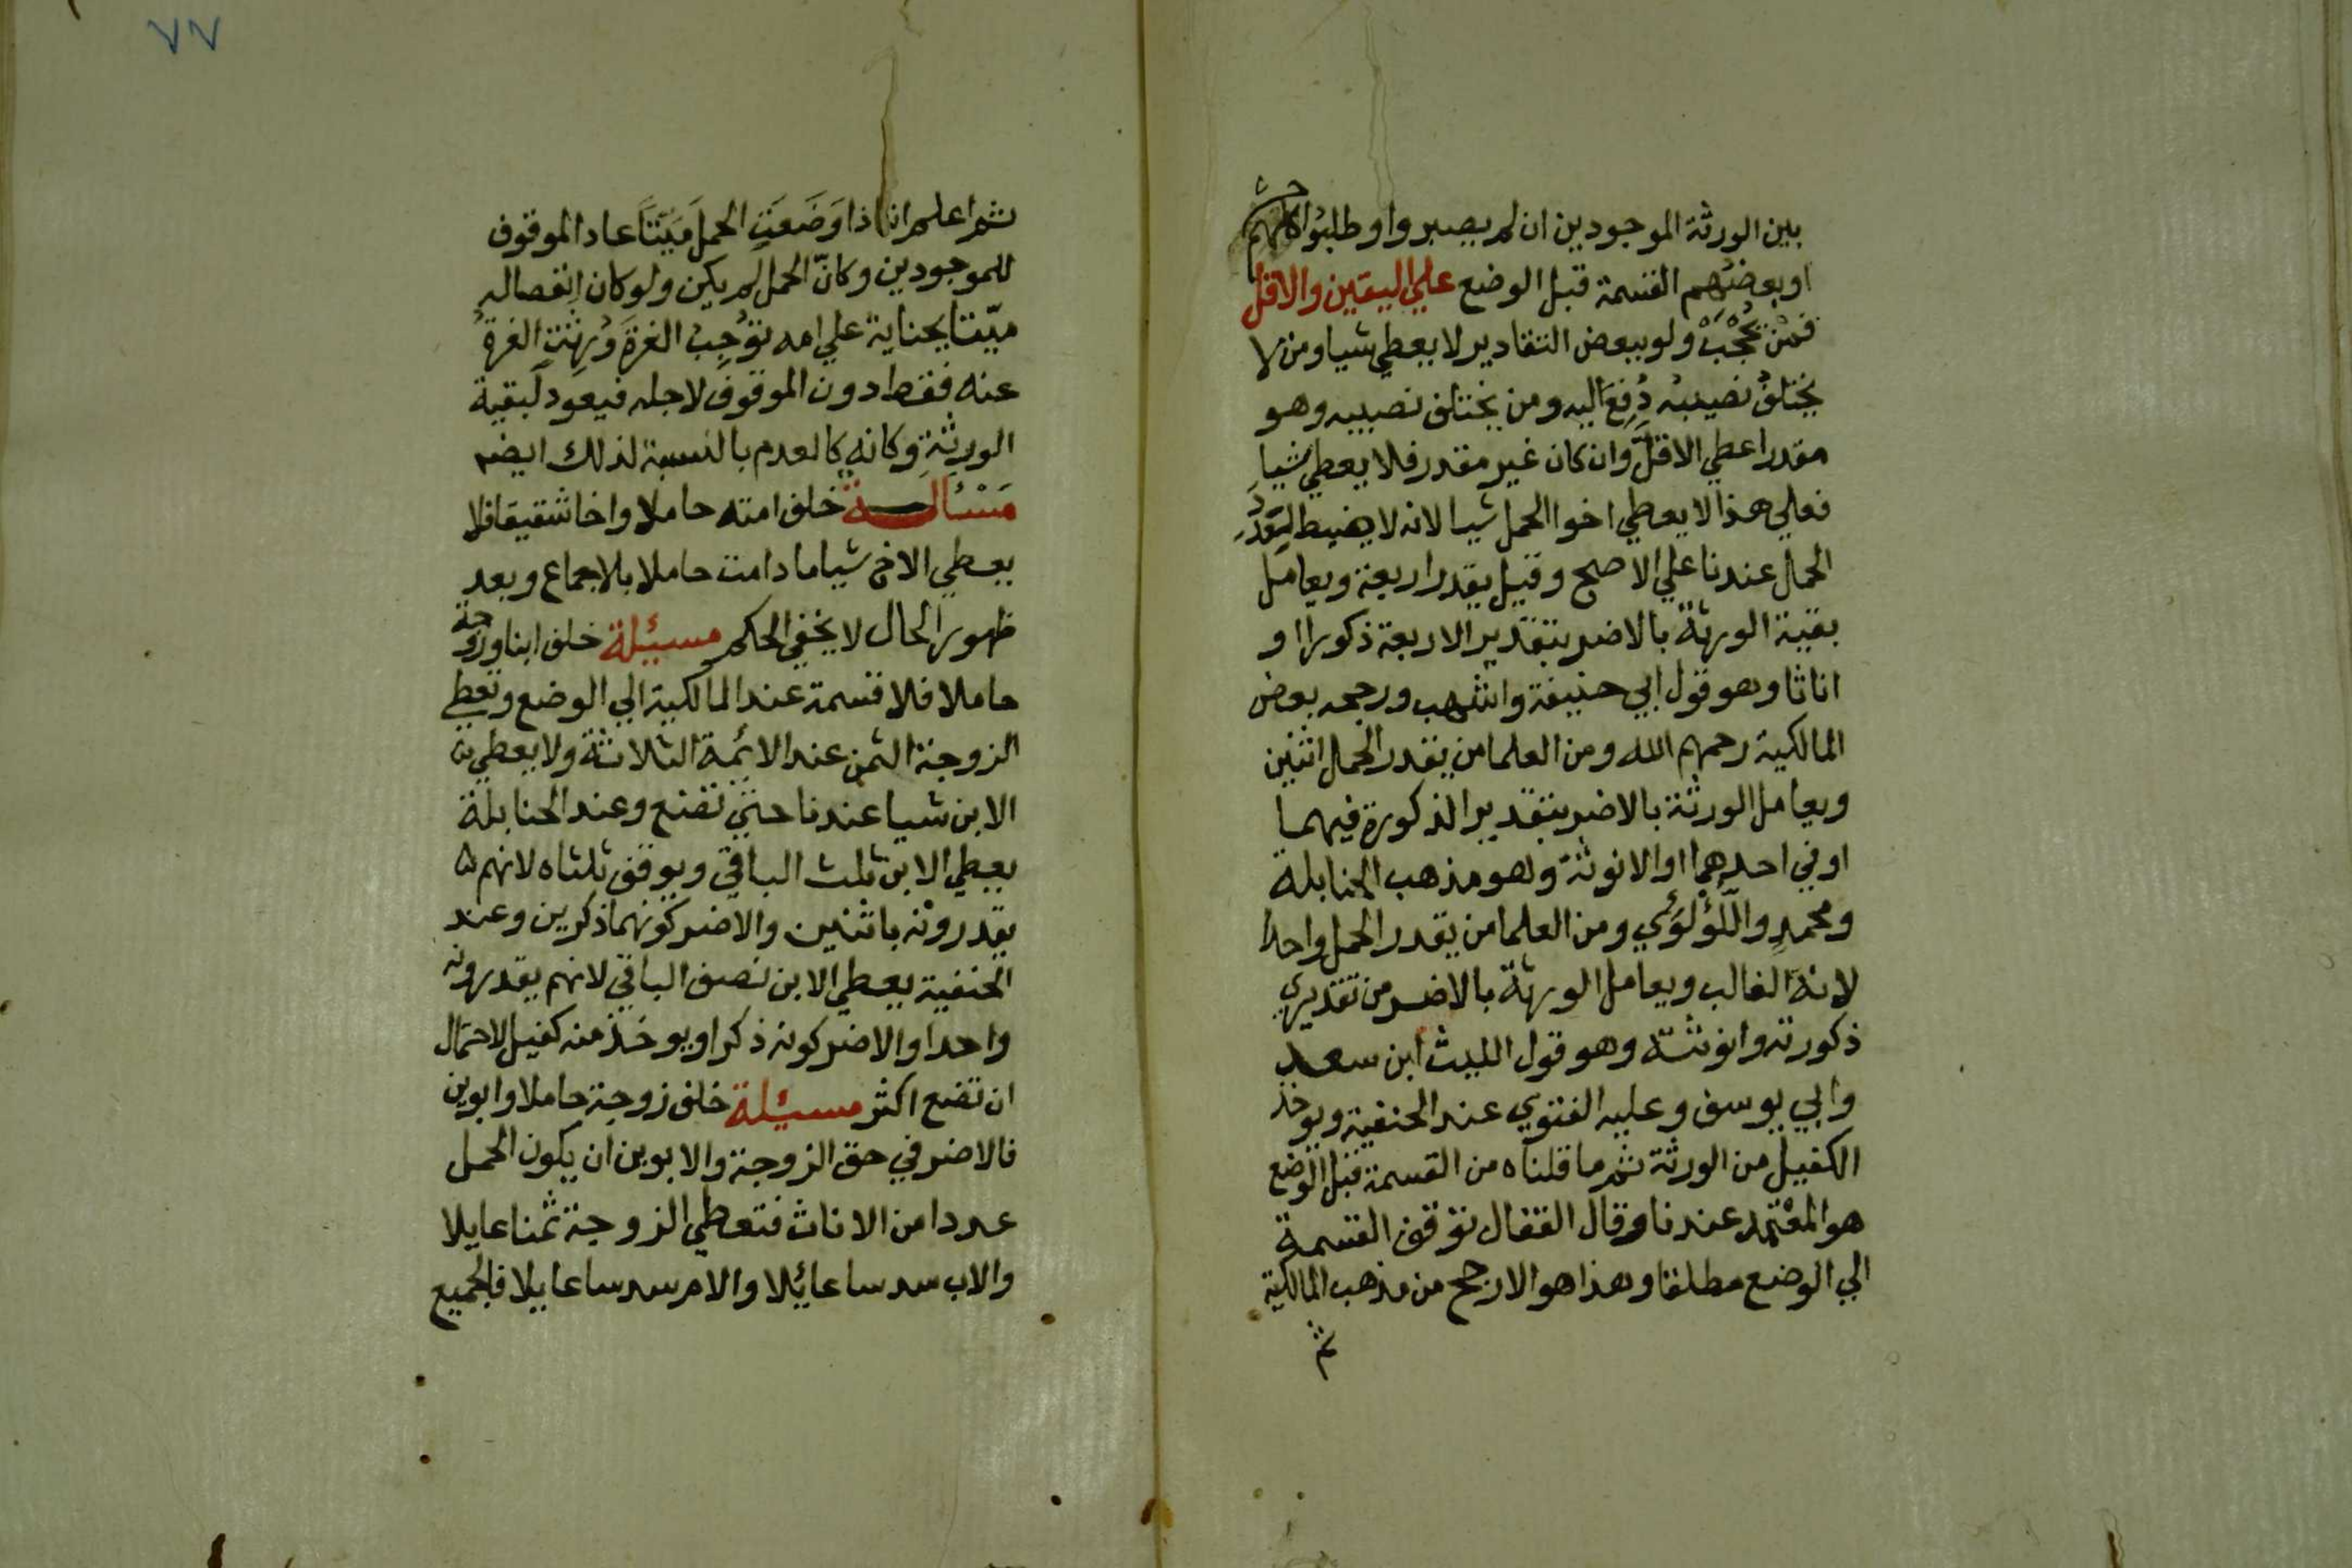 بين الورثة الموجودين ان لم يصبروا وطلبوا كلهم
او بعضهم القسمة قبل الوضع علي اليقين والاقل
فمن يحجب ولو ببعض التقادير لا يعطي شيا ومن لا
يختلف نصيبه دفع اليه ومن يختلف نصيبه وهو
مقدر اعطي الاقل وان كان غير مقدر فلا يعطي شيا
فعلي هذا لا يعطي اخوا الحمل شيا لانه لا ضبط لقدر
الحمل عندنا علي الاصح وقيل يقدر اربعة ويعامل
بقية الورثة بالاضر بتقدير الاربعة ذكورا او
اناثا وهو قول ابي حنيفة واشهب ورجحه بعض
المالكية رحمهم الله ومن العلما من يقدر الحمل اثنين
ويعامل الورثة بالاضر بتقدير الذكورة فيهما
او في احدهما او الانوثة وهو مذهب الحنابلة
ومحمد واللؤلؤي ومن العلما من يقدر الحمل واحدا
لانه الغالب ويعامل الورثة بالاضر من تقديري
ذكورته وانوثته وهو قول الليث ابن سعد
وابي يوسف وعليه الفتوي عند الحنفية ويوخذ
الكفيل من الورثة ثم ما قلناه من القسمة قبل الوضع
هو المعتمد عندنا وقال القفال توقف القسمة
الي الوضع مطلقا وهذا هو الارجح من مذهب المالكية
ثم
٧٧
ثم اعلم انه اذا وَضَعَتِ الحملَ مَيّتًا عاد الموقوف
للموجودين وكانّ الحمل لم يكن ولو كان انفصاله
ميّتا بجناية علي امه توجب الغرة وُرِثَتِ الغرةُ
عنه فقط دون الموقوف لاجله فيعود لبقية
الورثة وكانه كالعدم بالنسبة لذلك ايضم
مَسْئالـــة خلف امته حاملا واخا شقيقا فلا
يعطي الاخ شيا ما دامت حاملا بلاجماع وبعد
ظهور الحال لا يخفي الحكم مسيئلة خلف ابنا وزوجة
حاملا فلا قسمة عند المالكية الي الوضع وتعطي
الزوجة الثمن عند الائمة الثلاثة ولا يعطي
الابن شيا عندنا حتي تضع وعند الحنابلة
يعطي الابن ثلث الباقي ويوقف ثلثاه لانهم
يقدرونه باثنين والاضر كونهما ذكرين وعند
الحنفية يعطي الابن نصف الباقي لانهم يقدرونه
واحدا والاضر كونه ذكرا ويوخذ منه كفيل لاحتمال
ان تضع اكثر مسيئلة خلف زوجة حاملا وابوين
فالاضر في حق الزوجة والابوين ان يكون الحمل
عددا من الاناث فتعطي الزوجة ثمنا عايلا
والاب سدسا عائلا والام سدسا عايلا فالجميع